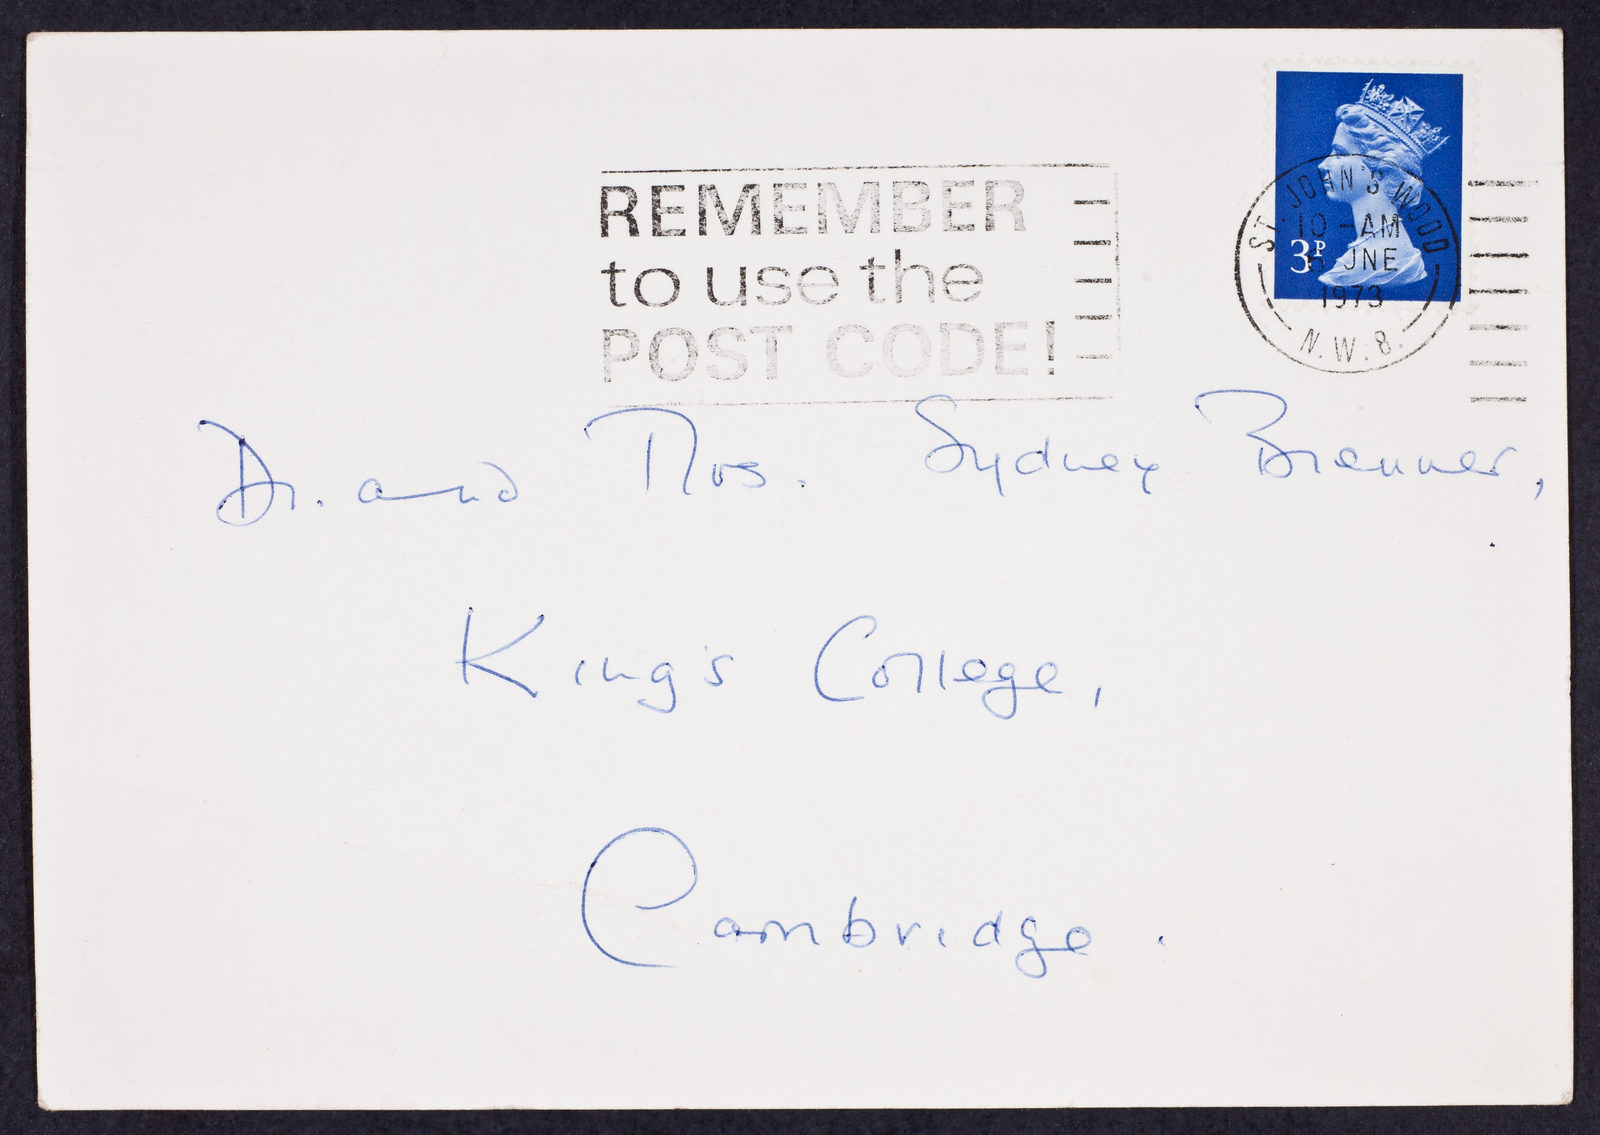 REMEMBER
to use the
POST CODE!
ST. JOHN'S WOOD
10 - AM
JNE
1973
N.W.8.
3P
Dr. and Mrs. Sydney Brenner,
King's College,
Cambridge.